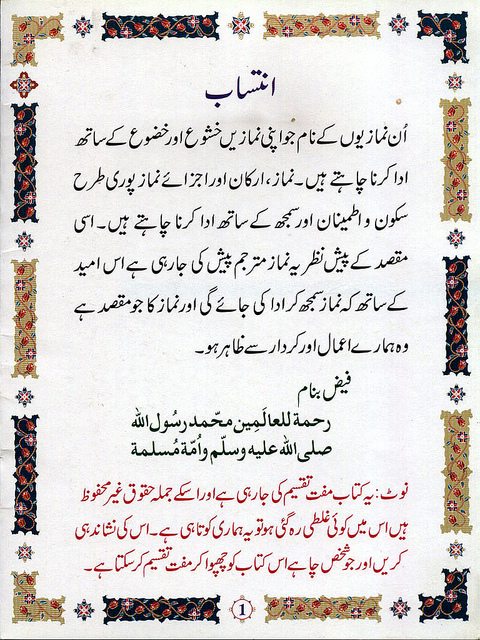 انتساب
اُن نمازیوں کے نام جو اپنی نمازیں خشوع اور خضوع کے ساتھ
ادا کرنا چاہتے ہیں۔ نماز، ارکان اور اجزائے نماز پوری طرح
سکون و اطمینان اور سمجھ کے ساتھ ادا کرنا چاہتے ہیں۔ اسی
مقصد کے پیش نظر یہ نماز مترجم پیش کی جارہی ہے اس امید
کے ساتھ کہ نماز سمجھ کر ادا کی جائے گی اور نماز کا جو مقصد ہے
وہ ہمارے اعمال اور کردار سے ظاہر ہو۔
فیض بنام
رحمة للعالَمِين محمّد رسُول الله
صلى الله عليه وسلّم واُمّة مُسلمة
نوٹ: یہ کتاب مفت تقسیم کی جارہی ہے اور اسکے جملہ حقوق غیر محفوظ
ہیں اس میں کوئی غلطی رہ گئی ہو تو یہ ہماری کوتاہی ہے۔ اس کی نشاندہی
کریں اور جو شخص چاہے اس کتاب کو چھپوا کر مفت تقسیم کرسکتا ہے۔
1